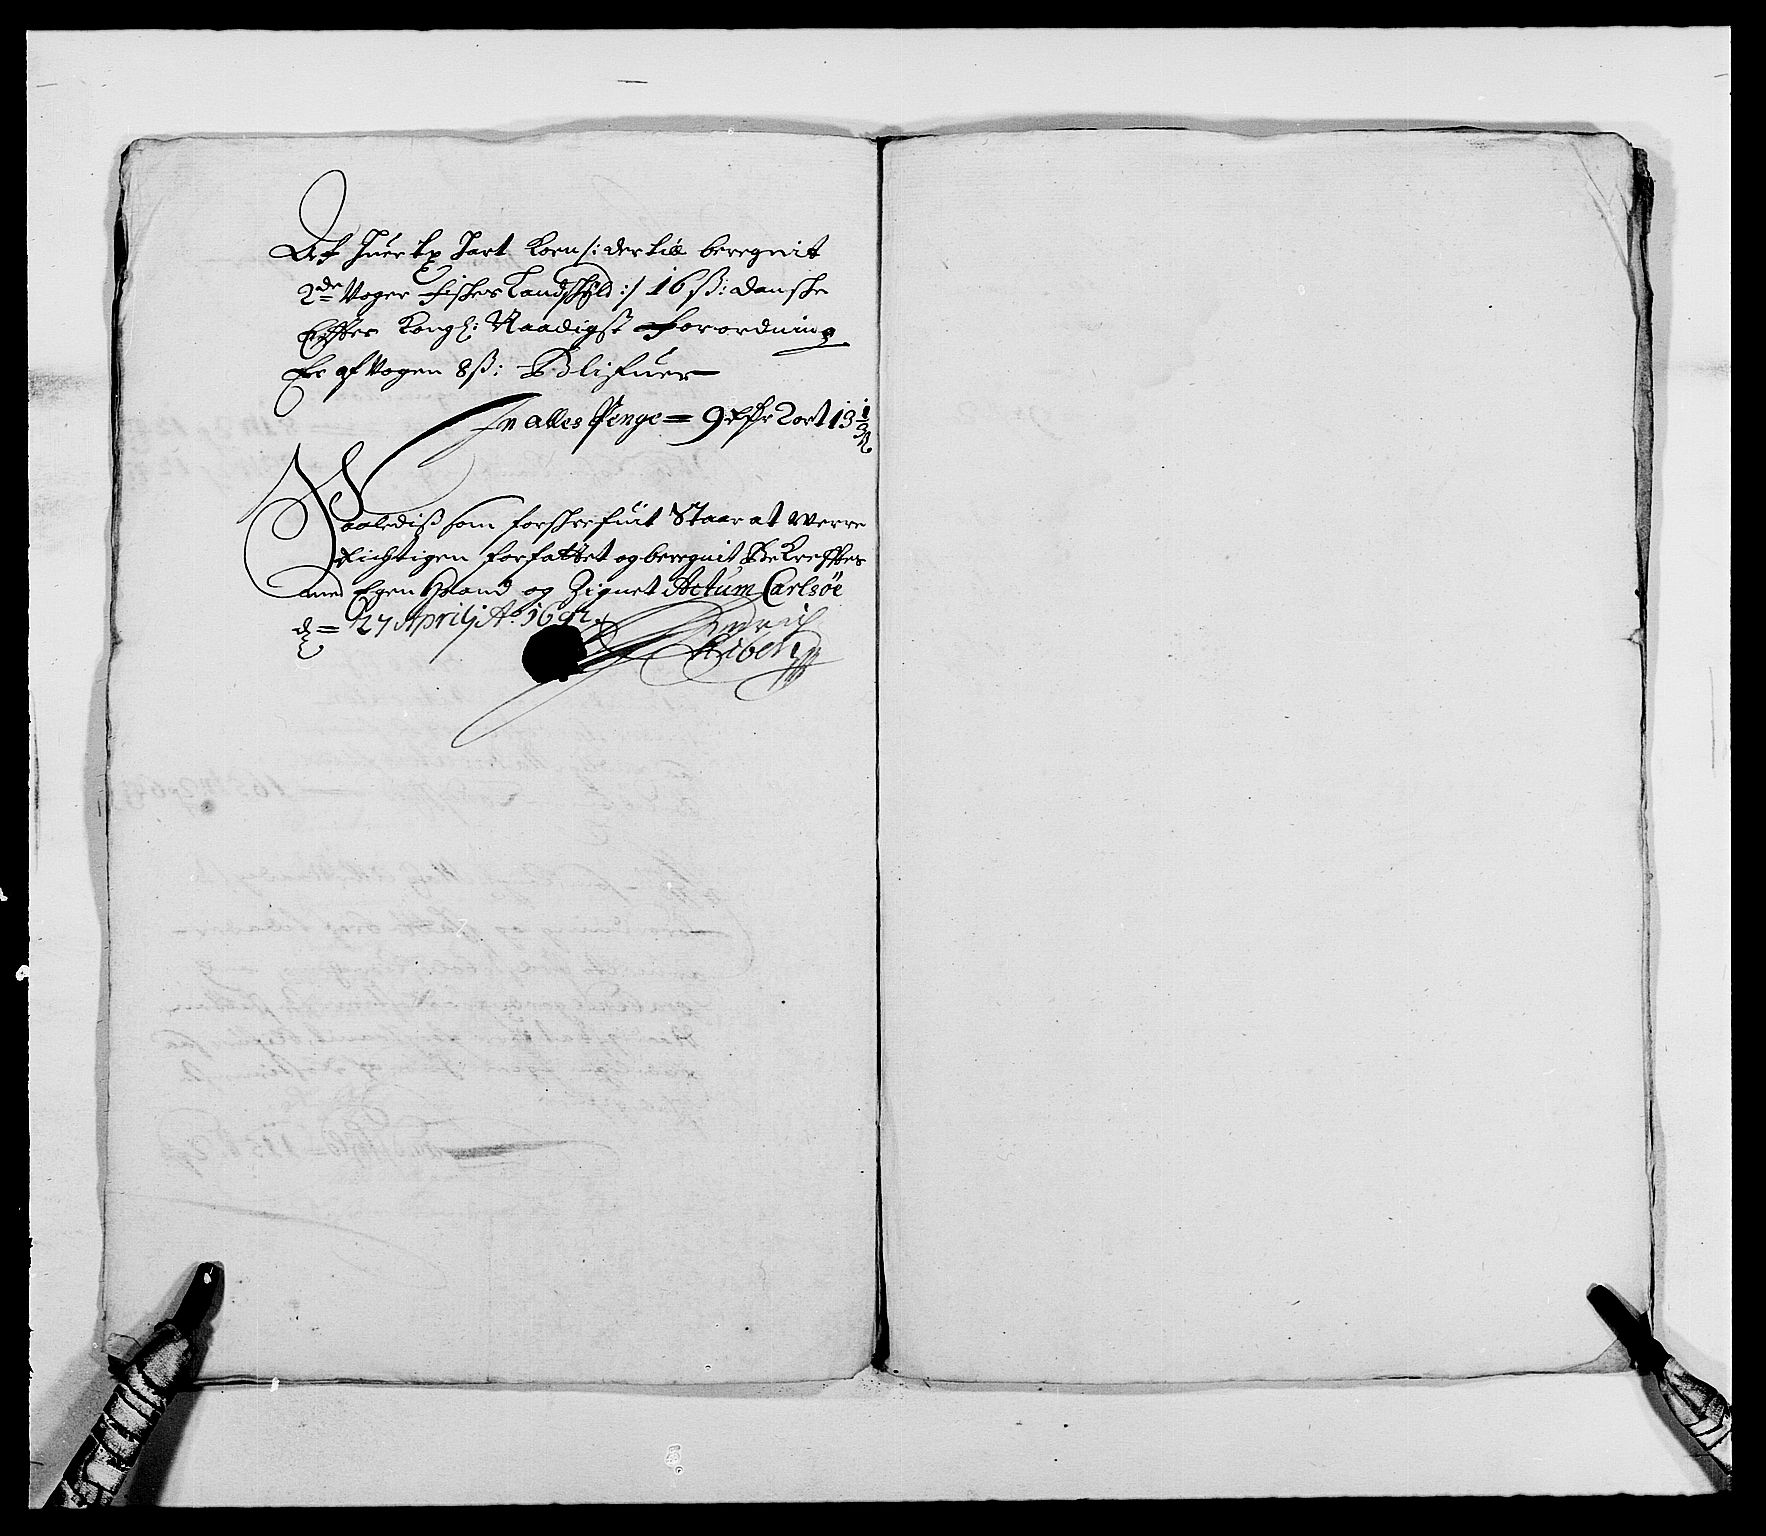 Af huer Tø Hart Korn /: der til beregnit
2de Woger Fiskes Landskÿld :/ 16 ß: danske
Effter Kongl: Naadigst Forordning
Er af Wogen 8 ß: Blifuer
In alles Penge = 9 Rdr 2 ort 13 1/2 ß
Saaledis som forskrefuit Staar at werre
Richtigen forfattet og beregnit Bekreffter
med Egen Haand og Zignet Actum Carlsøe
d = 27 Aprilj Ao 1692.